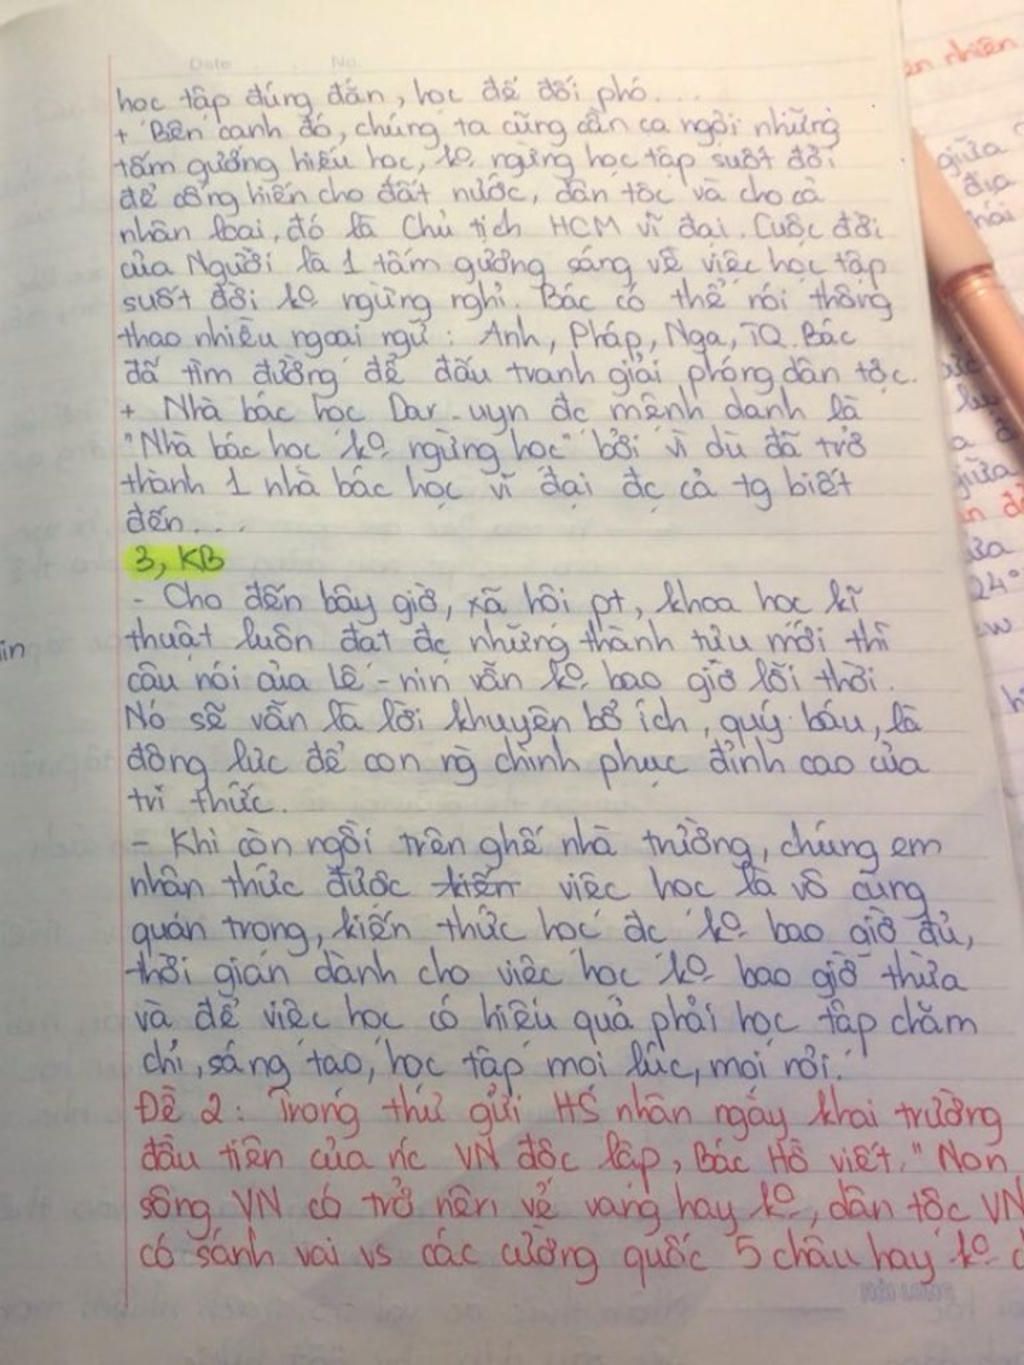 Date No.
học tập đúng đắn, học để đối phó....
+ Bên cạnh đó, chúng ta cũng cần ca ngợi những
tấm gương hiếu học, ko ngừng học tập suốt đời
để cống hiến cho đất nước, dân tộc và cho cả
nhân loại, đó là Chủ tịch HCM vĩ đại. Cuộc đời
của Người là 1 tấm gương sáng về việc học tập
suốt đời ko ngừng nghỉ. Bác có thể nói thông
thạo nhiều ngoại ngữ: Anh, Pháp, Nga, TQ. Bác
đã tìm đường để đấu tranh giải phóng dân tộc.
+ Nhà bác học Dar-uyn đc mệnh danh là
"Nhà bác học ko ngừng học" bởi vì dù đã trở
thành 1 nhà bác học vĩ đại đc cả tg biết
đến....
3, KB
- Cho đến bây giờ, xã hội pt, khoa học kĩ
thuật luôn đạt đc những thành tựu mới thì
câu nói của Lê-nin vẫn ko bao giờ lỗi thời.
Nó sẽ vẫn là lời khuyên bổ ích, quý báu, là
động lực để con ng chinh phục đỉnh cao của
tri thức.
- Khi còn ngồi trên ghế nhà trường, chúng em
nhận thức được kiến việc học là vô cùng
quan trọng, kiến thức học đc ko bao giờ đủ,
thời gian dành cho việc học ko bao giờ thừa
và để việc học có hiệu quả phải học tập chăm
chỉ, sáng tạo, học tập mọi lúc, mọi nơi.
Đề 2: Trong thư gửi HS nhân ngày khai trường
đầu tiên của nc VN độc lập, Bác Hồ viết "Non
sông VN có trở nên vẻ vang hay ko, dân tộc VN
có sánh vai vs các cường quốc 5 châu hay ko
nhiên
giữa
địa
giữa
24°